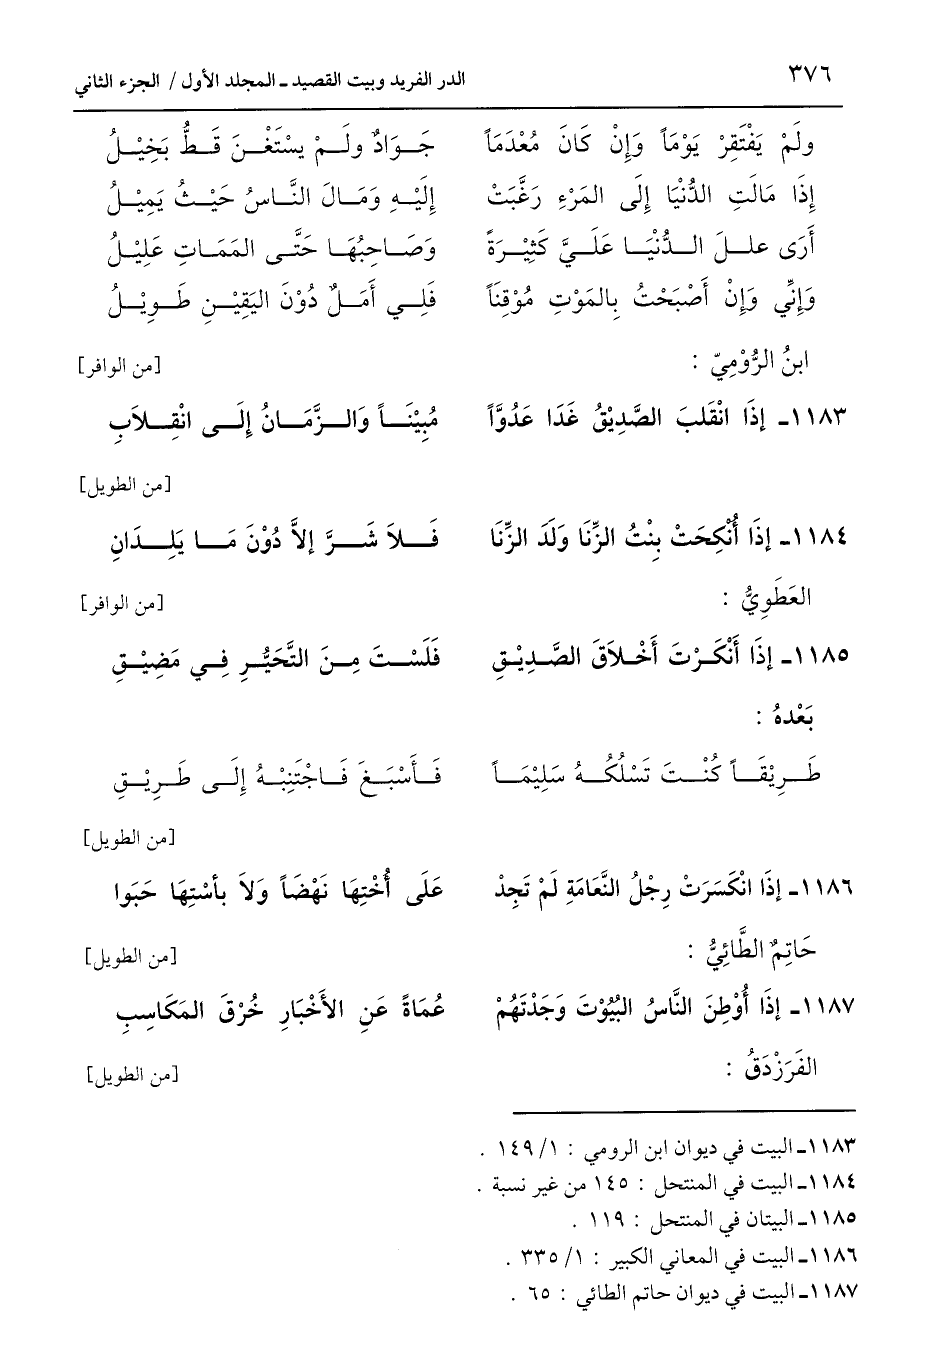 ٣٧٦ الدر الفريد وبيت القصيد ـ المجلد الأول / الجزء الثاني
ولَمْ يَفْتَقِرْ يَوْمَاً وَإِنْ كَانَ مُعْدَمَاً جَوَادٌ ولَمْ يسْتَغْنِ قَطُّ بَخِيْلُ
إِذَا مَالَتِ الدُّنْيَا إِلَى المَرْءِ رَغَّبَتْ إِلَيْهِ وَمَالَ النَّاسُ حَيْثُ يَمِيْلُ
أَرَى عللَ الدُّنْيَا عَلَيَّ كَثِيْرَةً وَصَاحِبُهَا حَتَّى المَمَاتِ عَلِيْلُ
وَإِنِّي وَإِنْ أَصْبَحْتُ بِالمَوْتِ مُوْقِنَاً فَلِي أَمَلٌ دُوْنَ اليَقِيْنِ طَوِيْلُ
ابنُ الرُّوْمِيّ : [من الوافر]
١١٨٣ـ إِذَا انْقَلبَ الصَّدِيْقُ غَدَا عَدُوَّاً مُبِيْنَاً وَالزَّمَانُ إِلَى انْقِلاَبِ
[من الطويل]
١١٨٤ـ إِذَا أُنْكِحَتْ بِنْتُ الزِّنَا وَلَدَ الزِّنَا فَلاَ شَرَّ إلاَّ دُوْنَ مَا يَلِدَانِ
العَطَوِيُّ : [من الوافر]
١١٨٥ـ إِذَا أَنْكَرْتَ أَخْلاَقَ الصَّدِيْقِ فَلَسْتَ مِنَ التَّحَيُّرِ فِي مَضِيْقِ
بَعْدهُ :
طَرِيْقَاً كُنْتَ تَسْلُكُهُ سَلِيْمَاً فَأَسْبَغَ فَاجْتَنِبْهُ إِلَى طَرِيْقِ
[من الطويل]
١١٨٦ـ إِذَا انْكَسَرَتْ رِجْلُ النَّعَامَةِ لَمْ تَجِدْ عَلَى أُخْتِهَا نَهْضَاً وَلاَ بأسْتِهَا حَبَوا
حَاتِمٌ الطَّائِيُّ : [من الطويل]
١١٨٧ـ إِذَا أُوْطِنَ النَّاسُ البُيُوْتَ وَجَدْتَهُمْ عُمَاةً عَنِ الأَخْبَارِ خُرْقَ المَكَاسِبِ
الفَرَزْدَقُ : [من الطويل]
١١٨٣ـ البيت في ديوان ابن الرومي : ١/ ١٤٩ .
١١٨٤ـ البيت في المنتحل : ١٤٥ من غير نسبة .
١١٨٥ـ البيتان في المنتحل : ١١٩ .
١١٨٦ـ البيت في المعاني الكبير : ١/ ٣٣٥ .
١١٨٧ـ البيت في ديوان حاتم الطائي : ٦٥ .